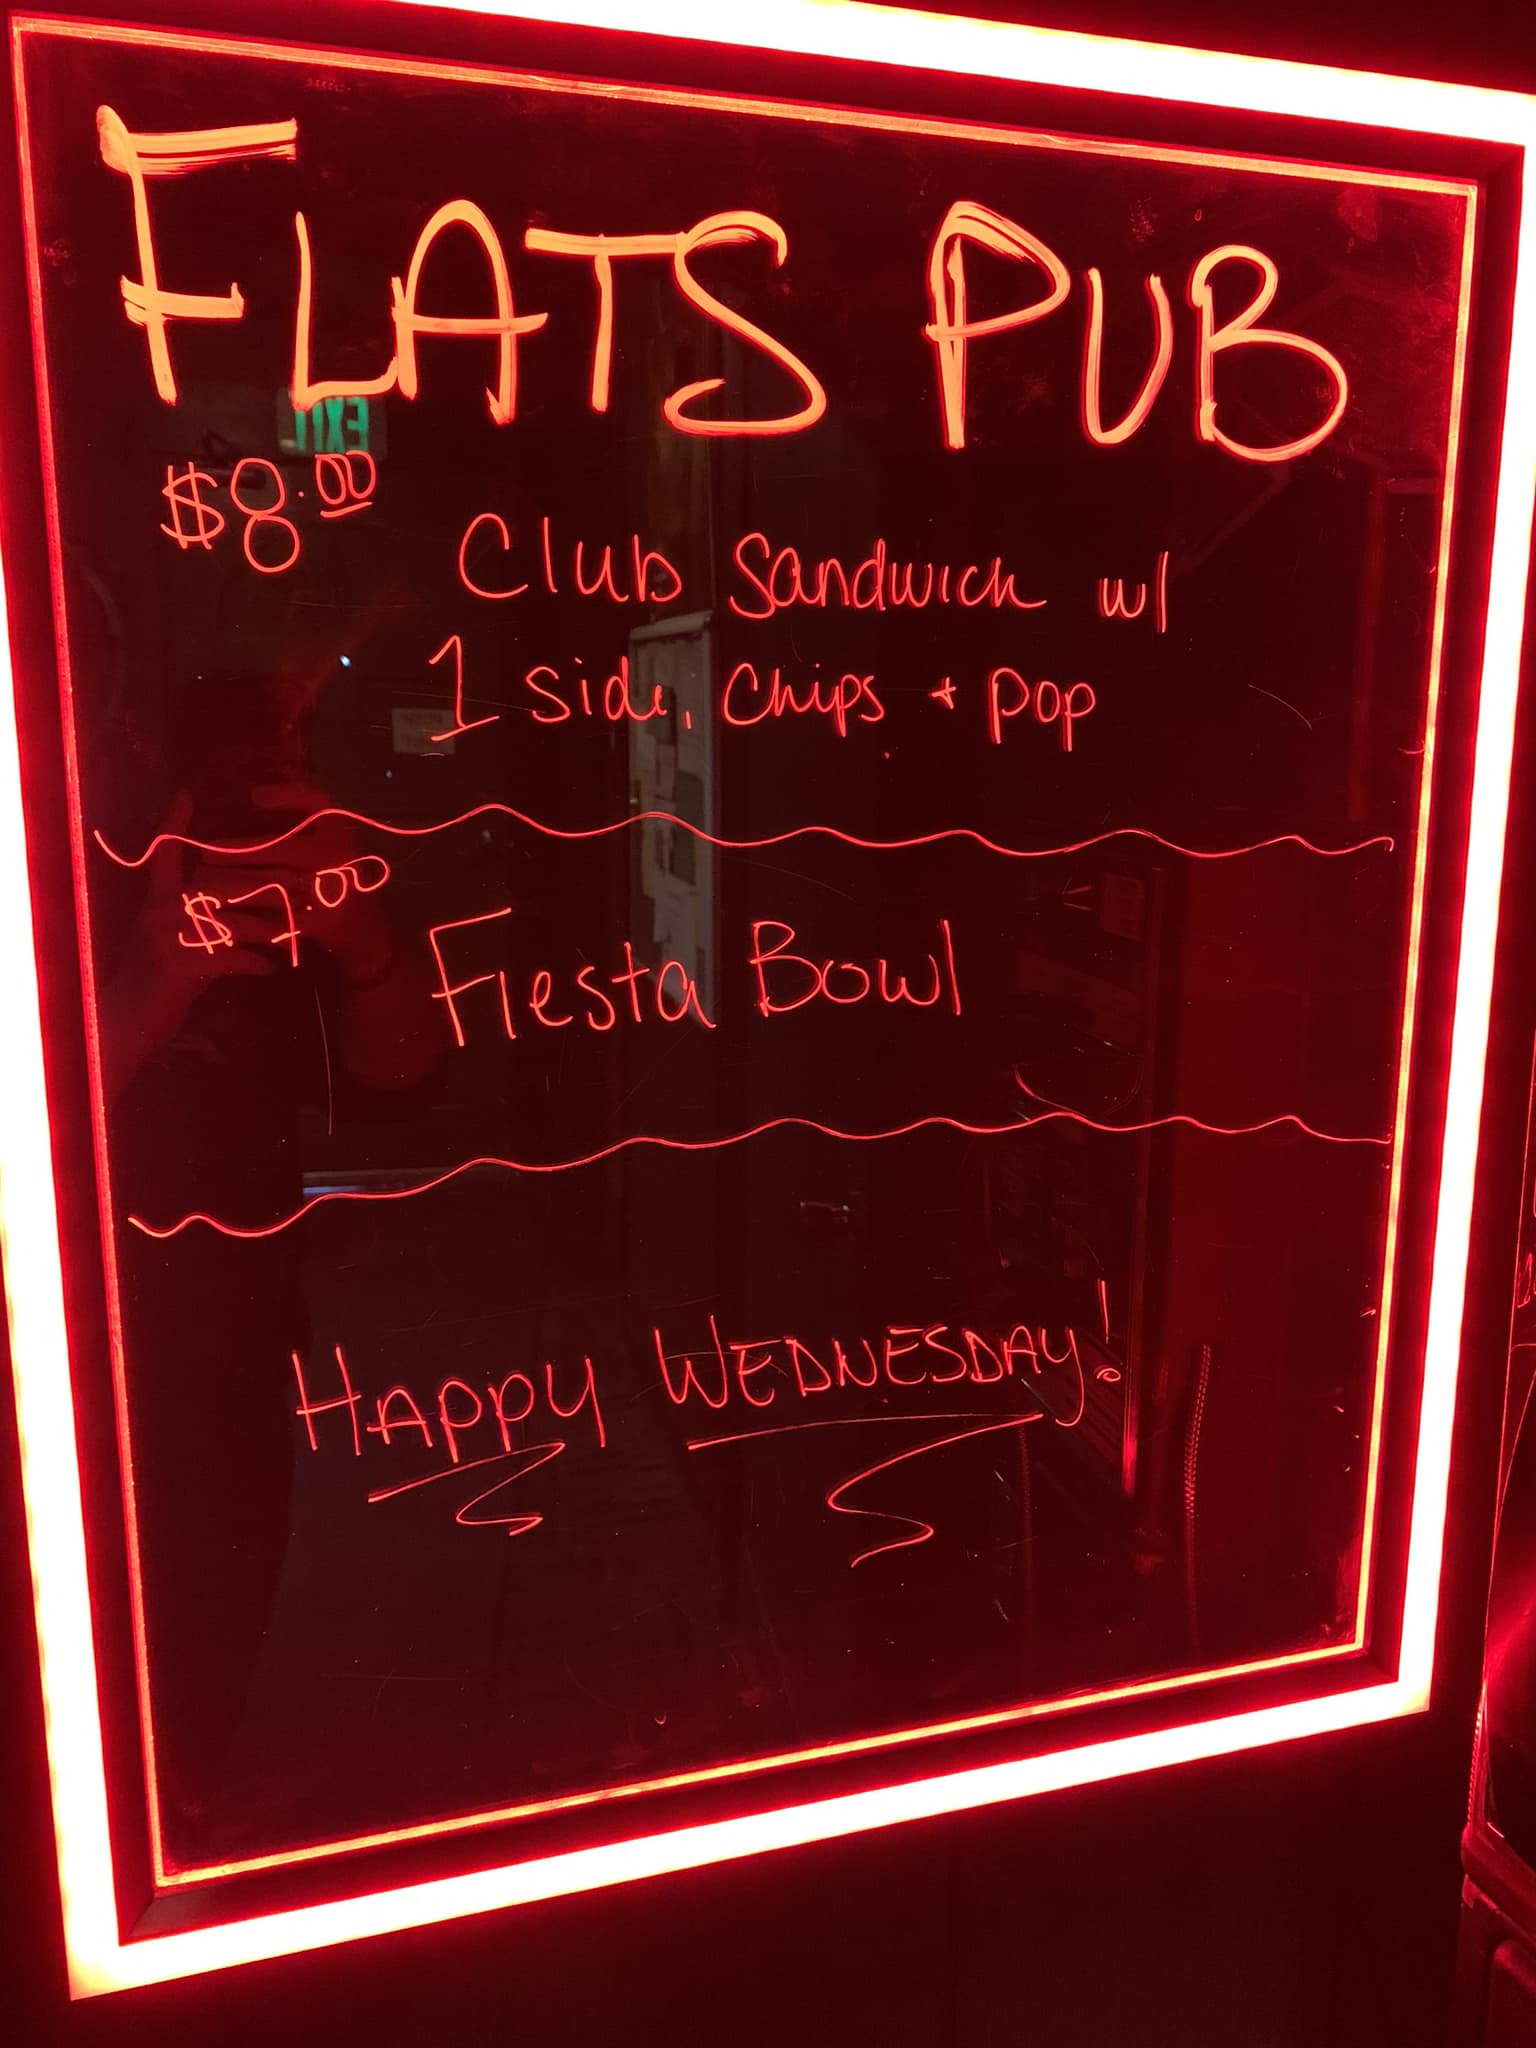 FLATS PUB
$8.00
Club Sandwich w/
1 side, chips + pop
$7.00
Fiesta Bowl
HAPPY WEDNESDAY!
EXIT